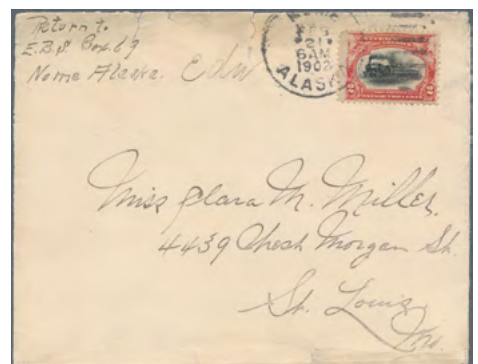 Return to
E.B.S Box 69
Nome Alaska. Edw
FEB
21
6AM
1902
ALASKA
Miss Clara M. Miller,
4439 Morgan St.
St. Louis
Mo.